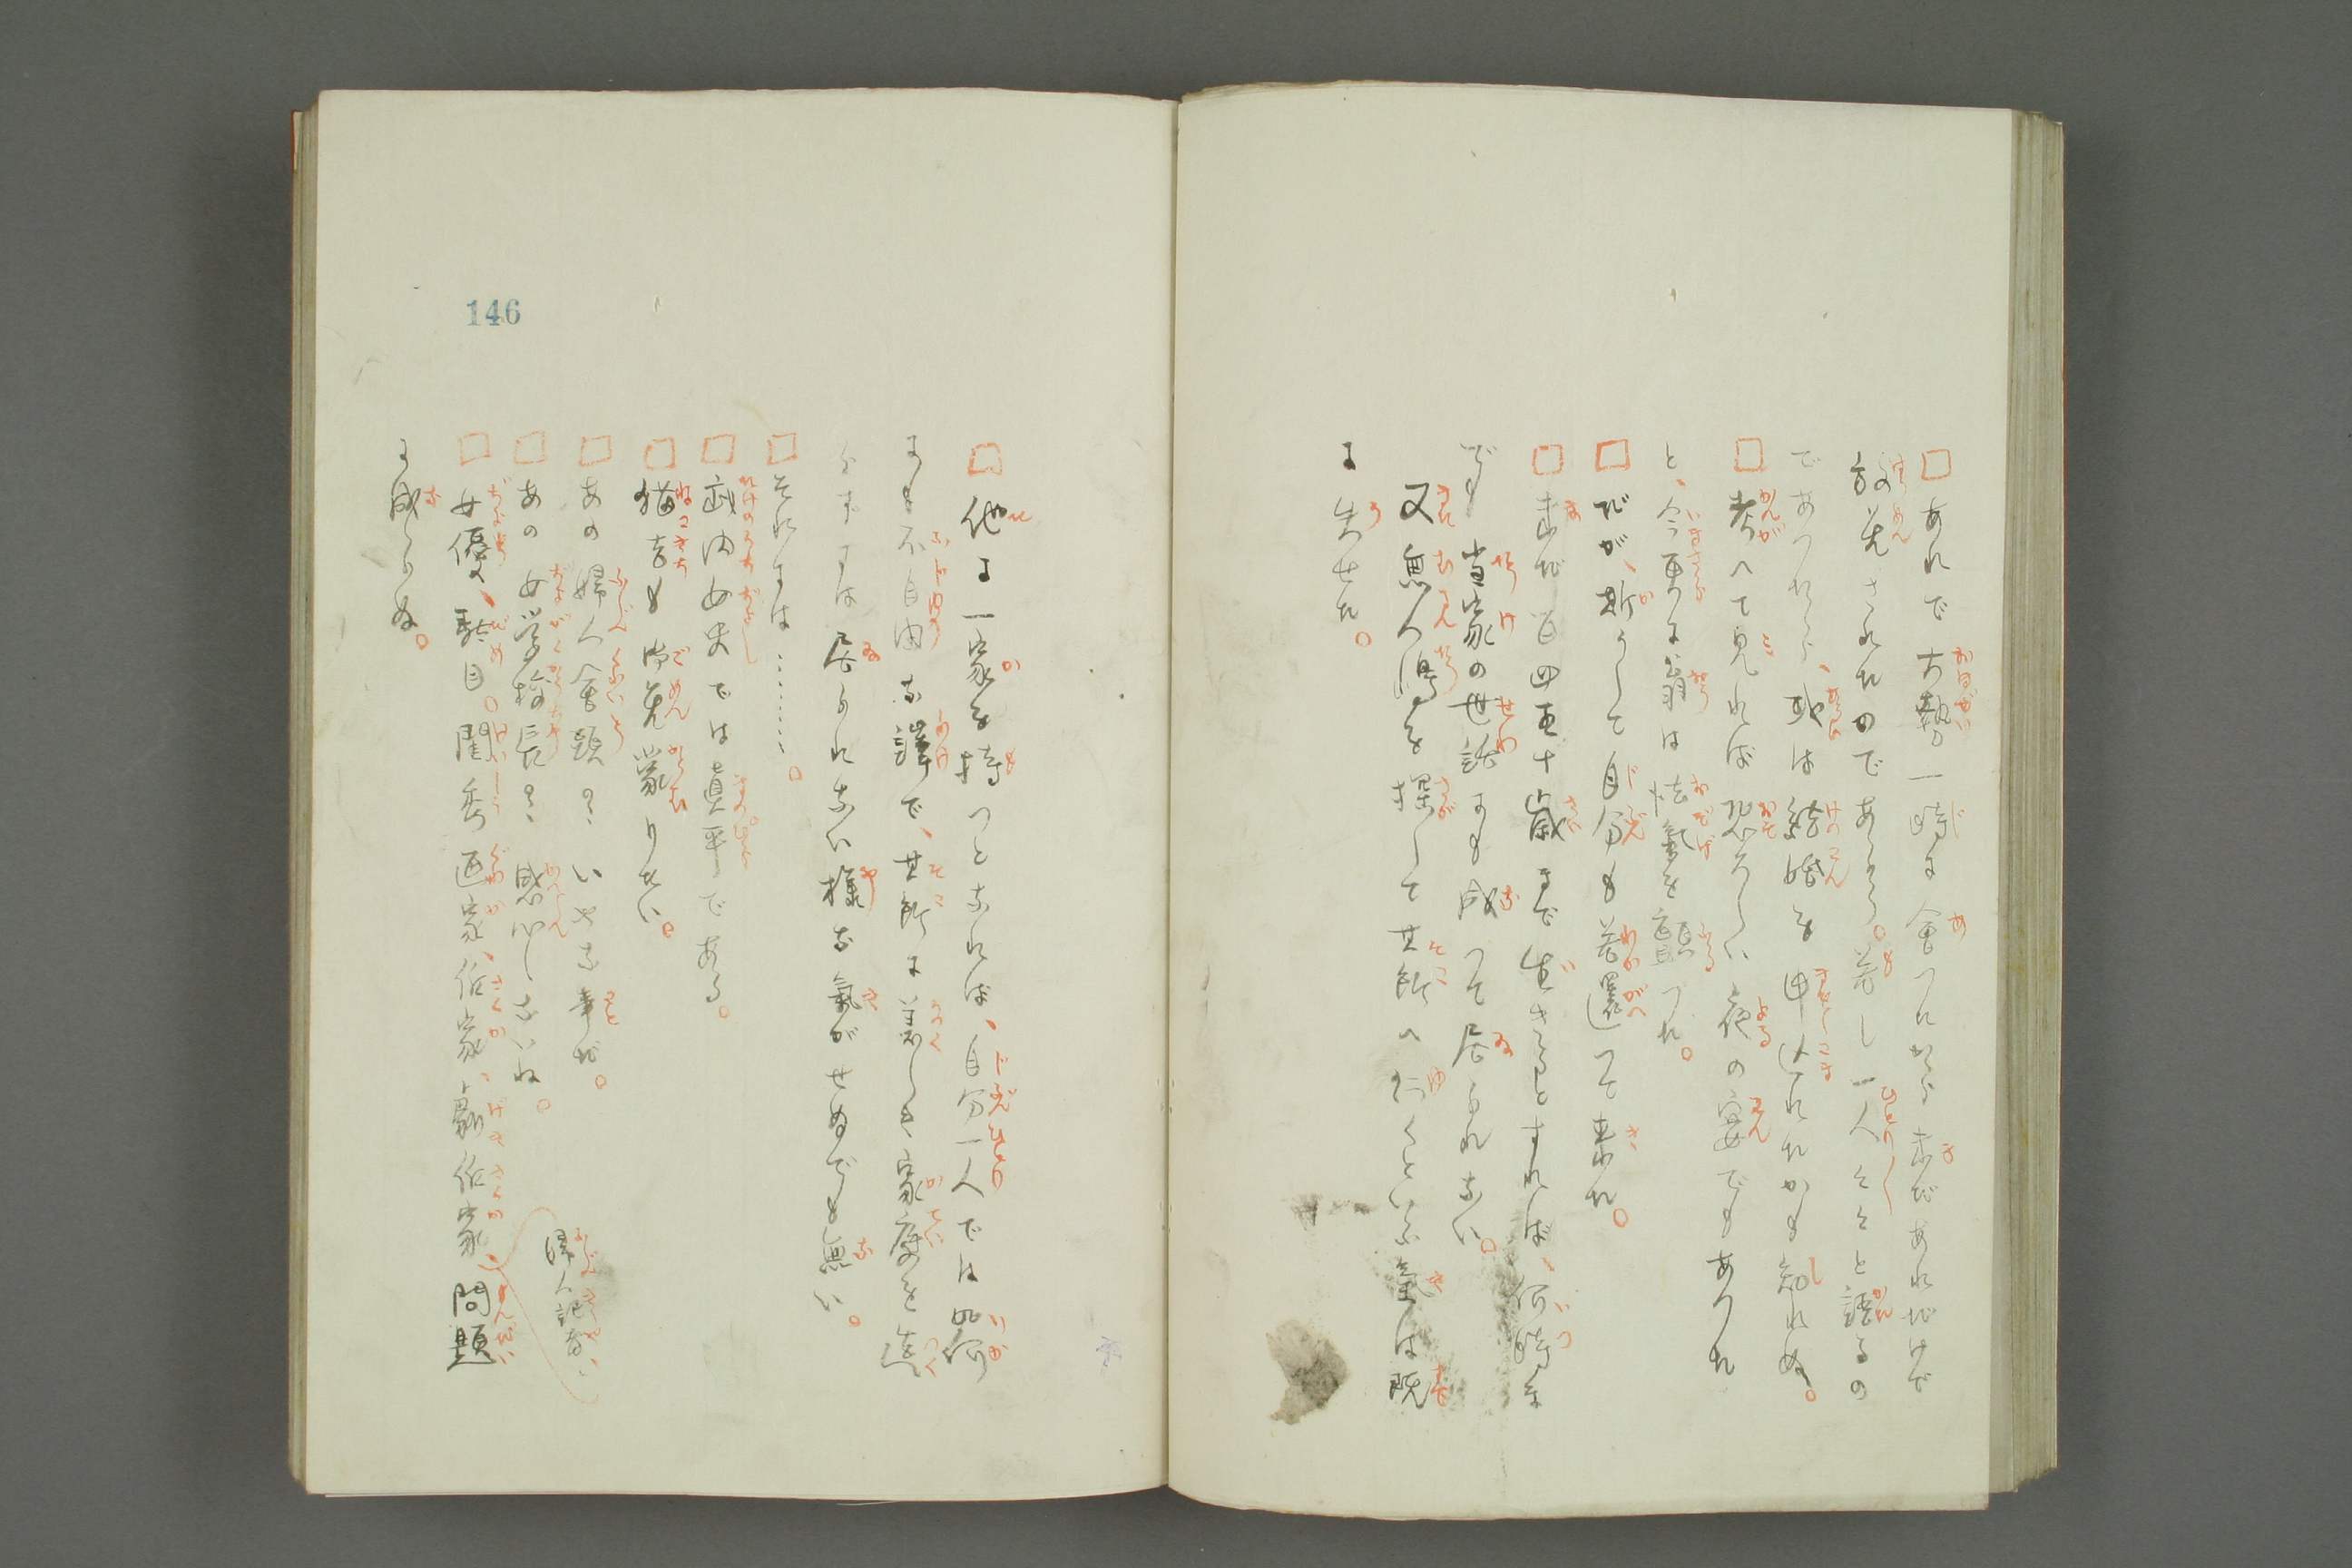 □あれで大勢一時に會つたから未だあれだけで
放免されたのであらう。若し一人々々と語るの
であつたら、或は結婚を申込れたかも知れぬ。
□考へて見れば恐ろしい夜の宴でもあつた
と、今更に翁は怯氣を顫つた。
□だが、斯うして自分も若還つて来た。
□未だ百四五十歳まで生きるとすれば、何時ま
でも當家の世話にも成つて居られない。
又無人島を探して其所へ行くといふ氣は既
に失せた。
□他に一家を持つとなれば、自分一人では如何
にも不自由な譯で、其所に美しき家庭を造
らずには居られない様な氣がせぬでも無い。
□それには………。
□武内女史では真平である。
□猫吉も御免蒙りたい。
□あの婦人會頭の？いやな事だ。
□あの女学校長の？感心しないね。
□女優、駄目。閨秀画家、作家、劇作家、婦人記者、問題
に成らぬ。
146